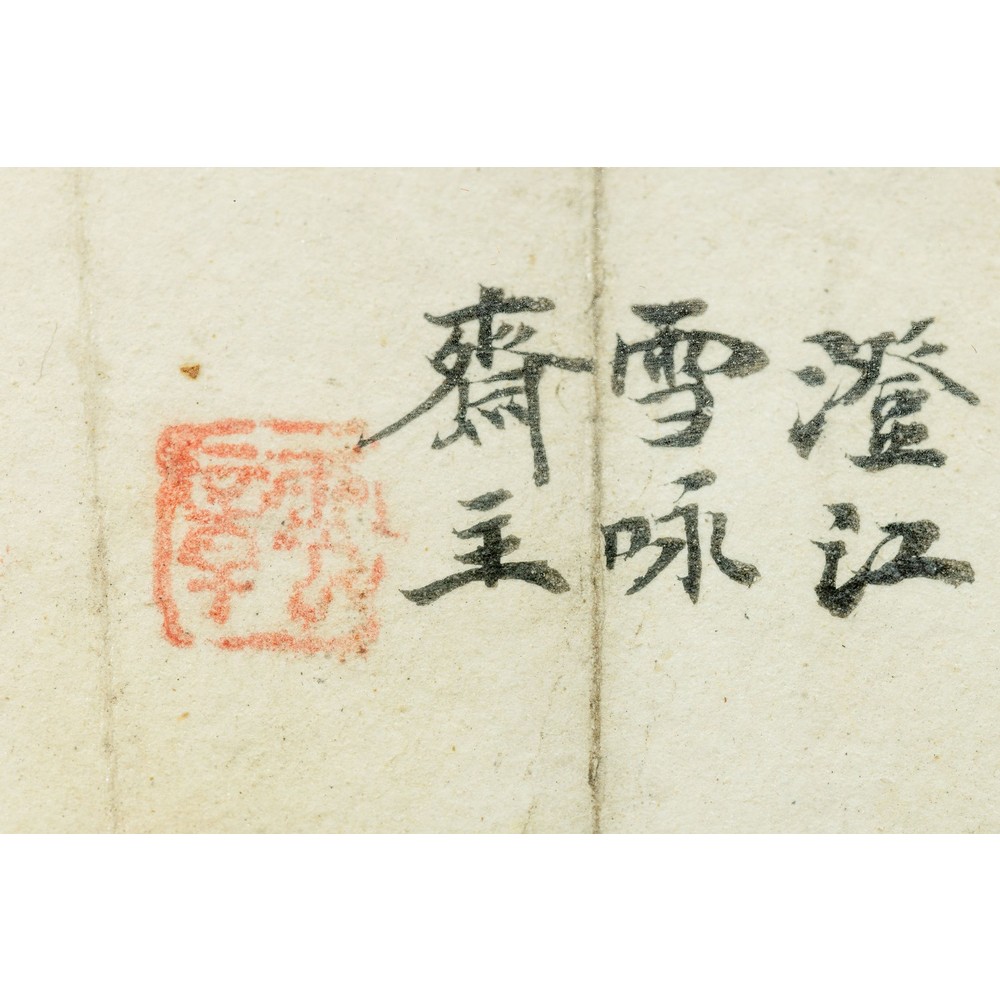 澄江
雪咏
齋主